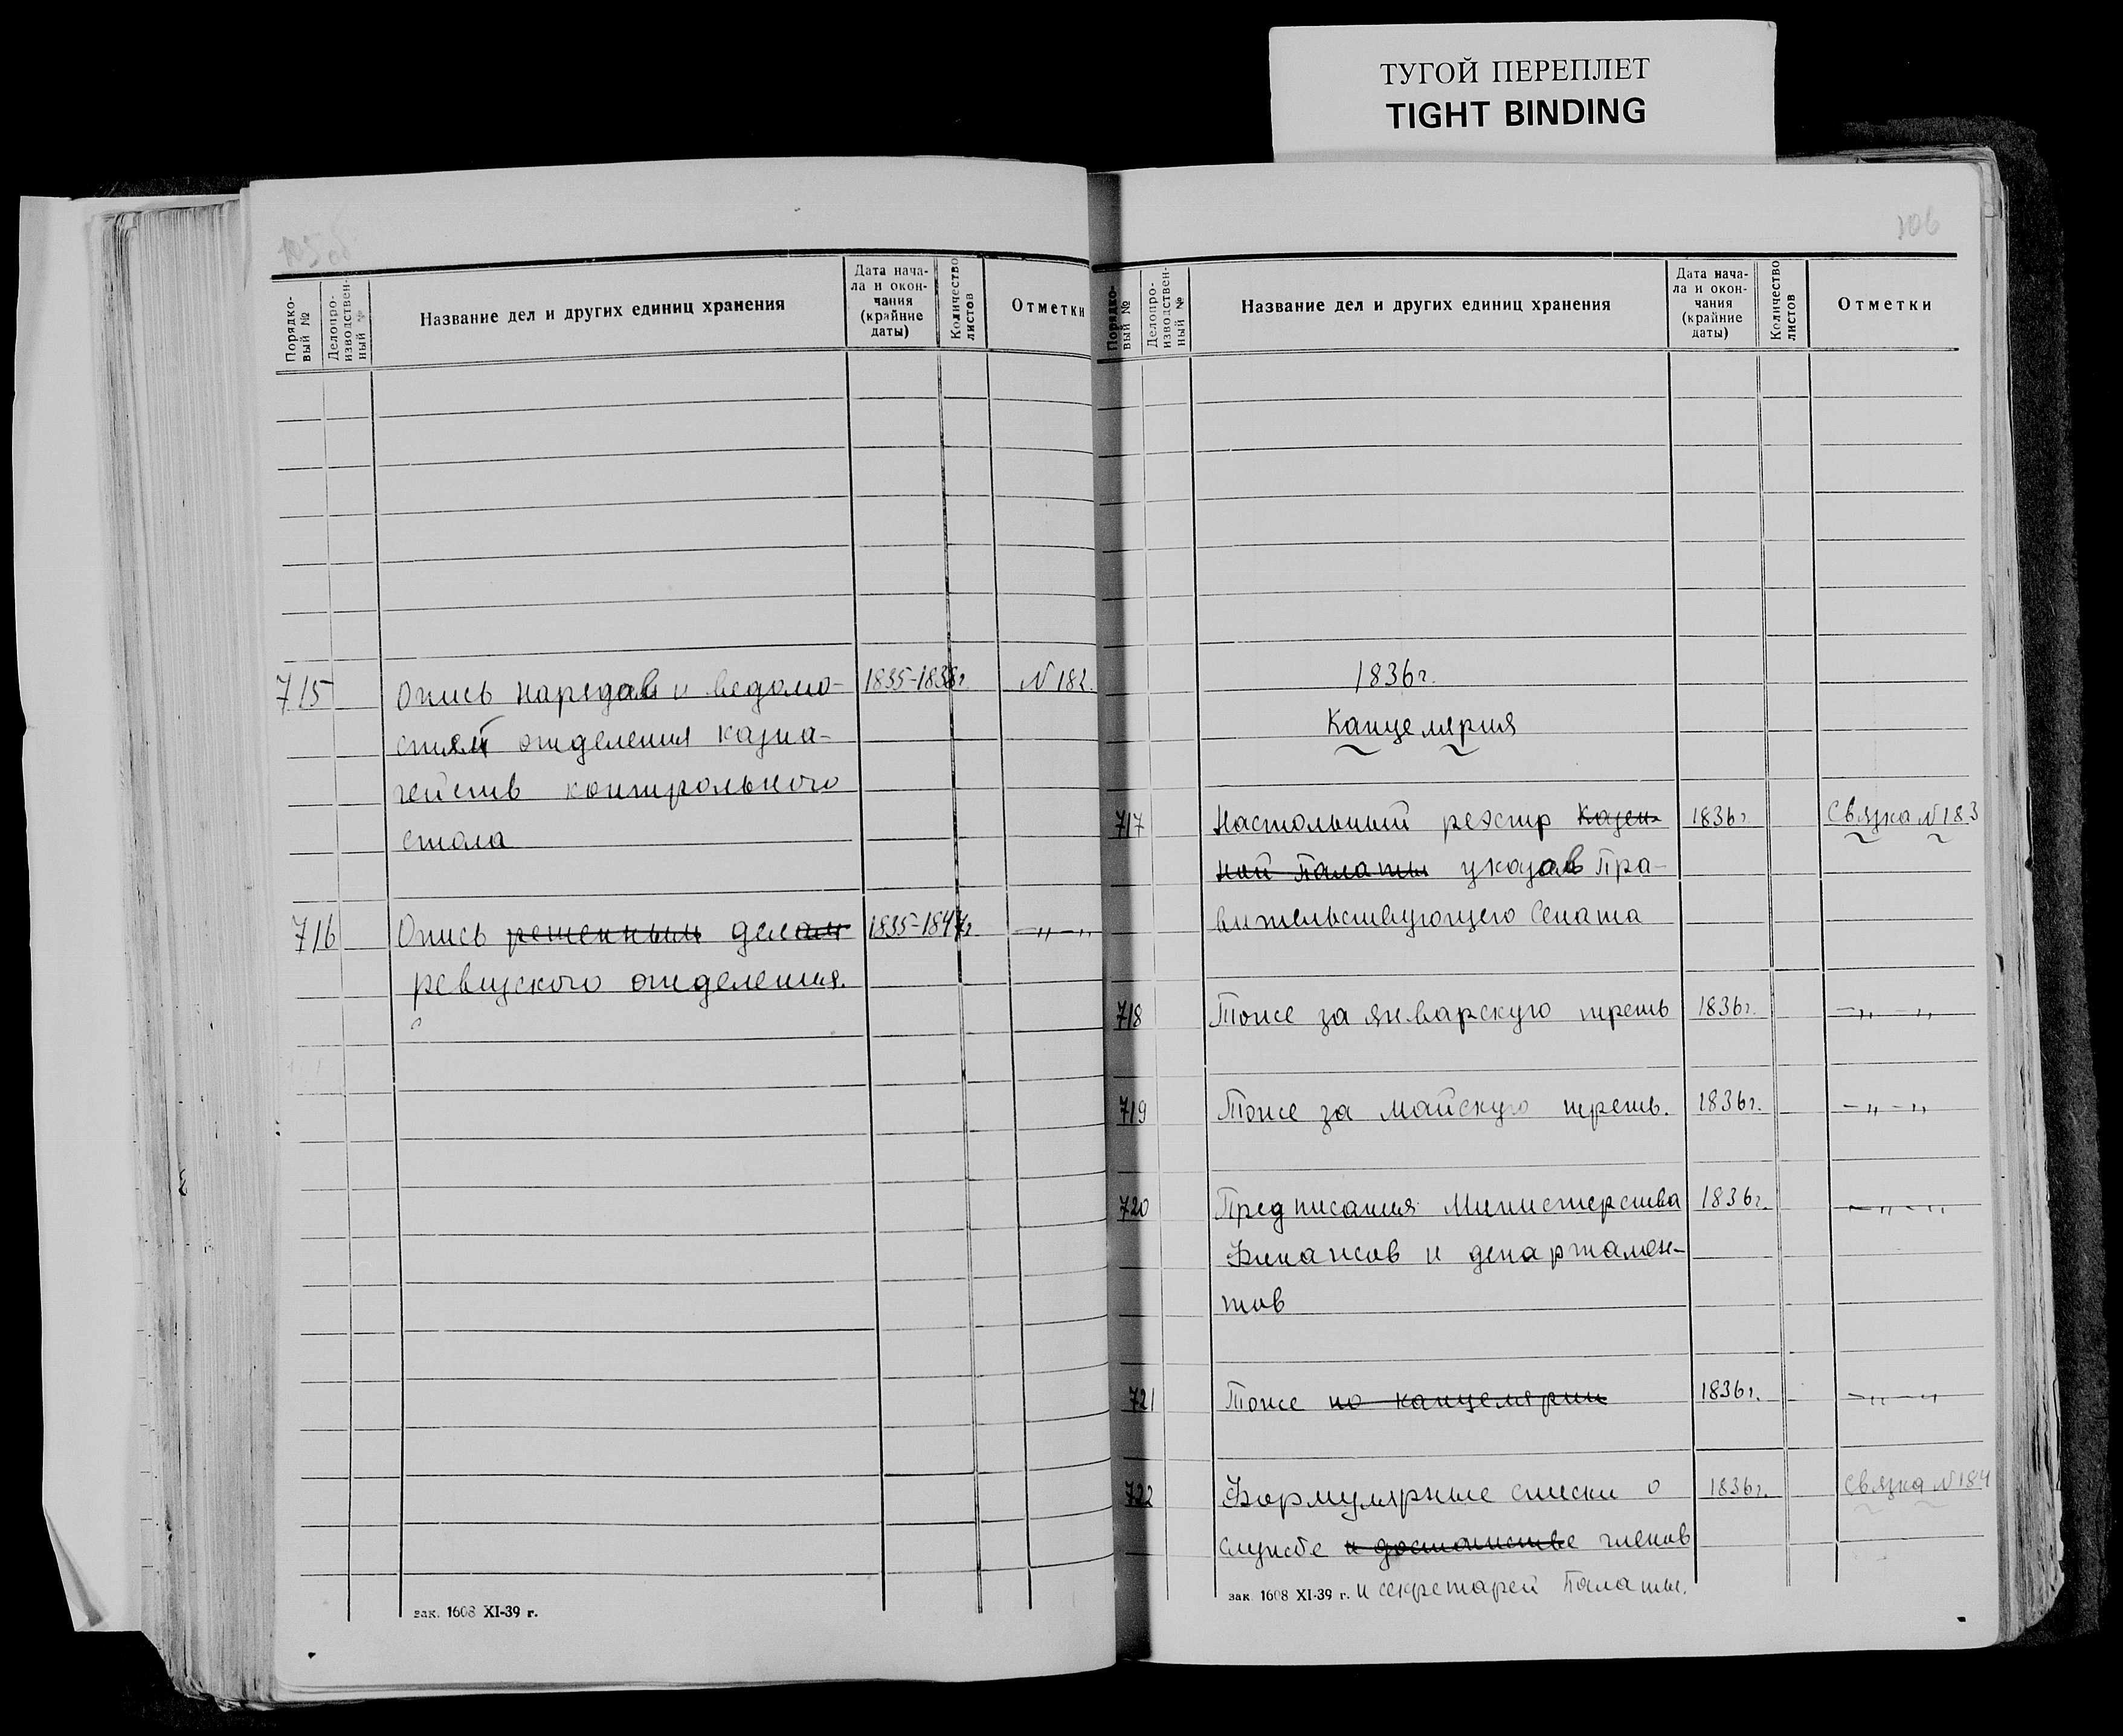 ТУГОЙ ПЕРЕПЛЕТ
TIGHT BINDING
105об
Порядко-
вый №
Делопро-
изводствен-
ный №
Название дел и других единиц хранения
Дата нача-
ла и окон-
чания
(крайние
даты)
Количество
листов
Отметки
715 Опись нарядов и ведомо- 1835-1838г. N 182.
стей отделения казна-
чейств контрольного
стола
716 Опись решенным делам 1835-1847г. —„—„
ревизского отделения.
зак. 1608 XI-39 г.
106
Порядко-
вый №
Делопро-
изводствен-
ный №
Название дел и других единиц хранения
Дата нача-
ла и окон-
чания
(крайние
даты)
Количество
листов
Отметки
1836г.
Канцелярия
717 Настольный реэстр Казен- 1836г. Связка N 183
ной Палаты указов Пра-
вительствующего Сената
718 Тоже за январскую треть 1836г. —„—„
719 Тоже за майскую треть. 1836г. —„—„
720 Предписания Министерства 1836г. —„—„
Финансов и департамен-
тов
721 Тоже по канцелярии 1836г. —„—„
722 Формулярные списки о 1836г. Связка N 184
службе и достоинстве членов
зак. 1608 XI-39 г. и секретарей Палаты.